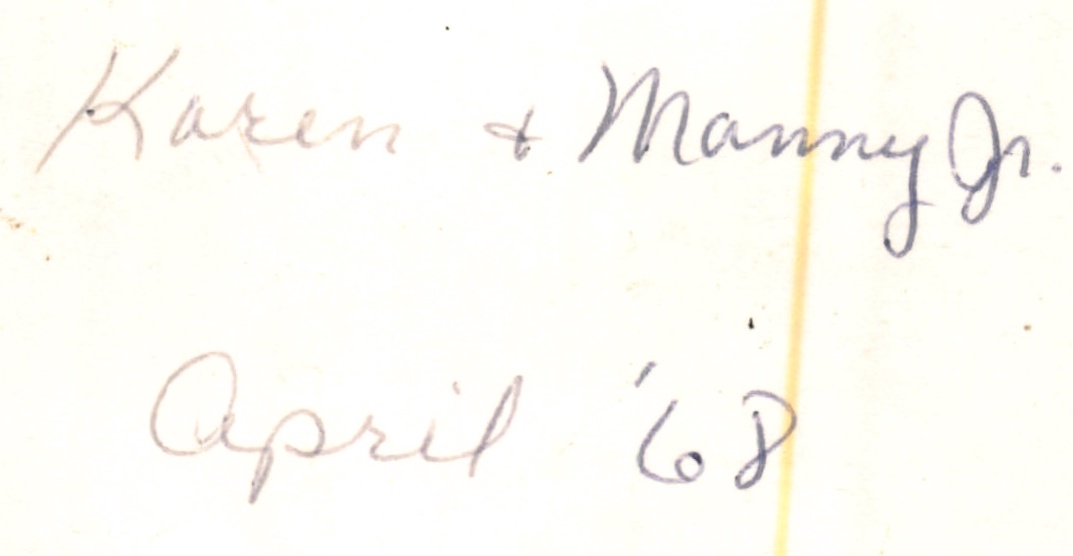 Karen + Manny Jr.
April '68